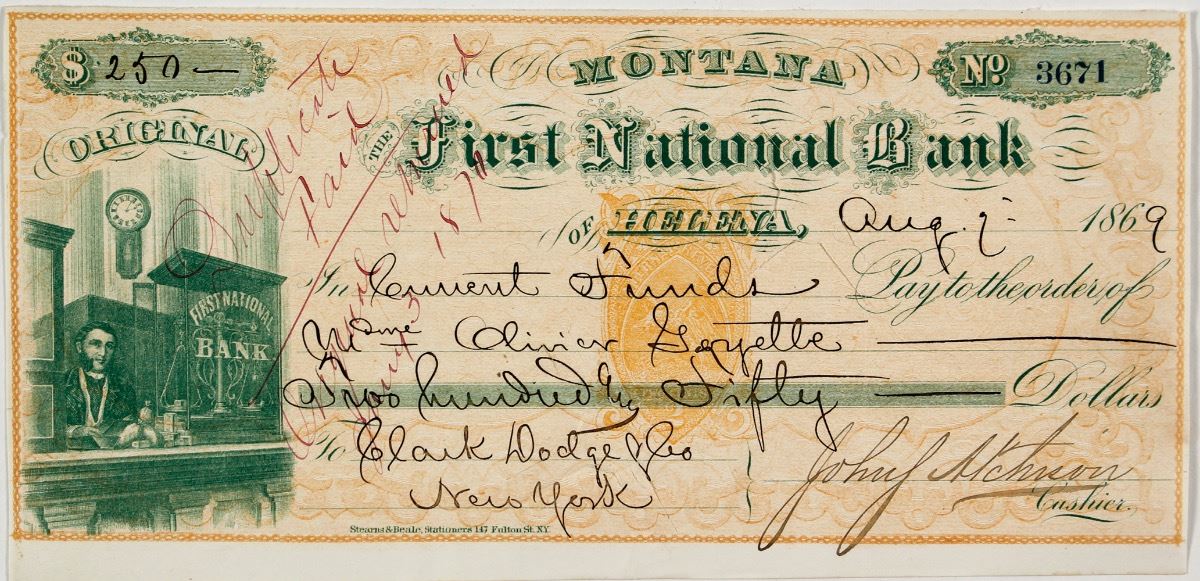 $ 250 —
MONTANA
No 3671
ORIGINAL
THE First National Bank
OF HELENA, Aug. 7 1869
In Current Funds Pay to the order of
Mme Olivier Goyette
Two hundred & Fifty Dollars
To Clark Dodge & Co
New York
John J Atchison
Cashier.
FIRST NATIONAL
BANK
Stearns & Beale, Stationers 147 Fulton St. N.Y.
Duplicate
Paid
Original returned
1870